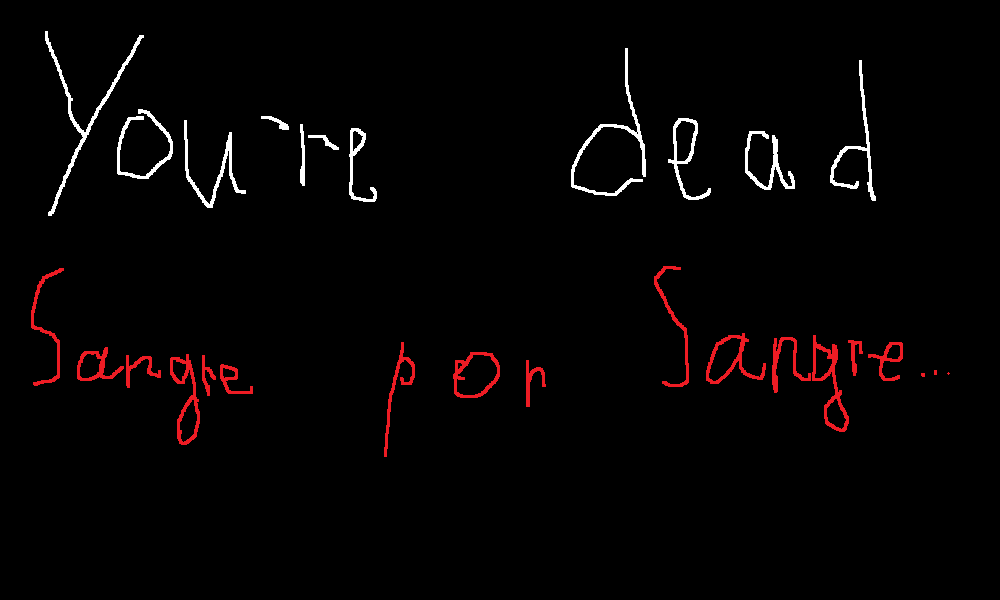 You're dead
Sangre por Sangre...